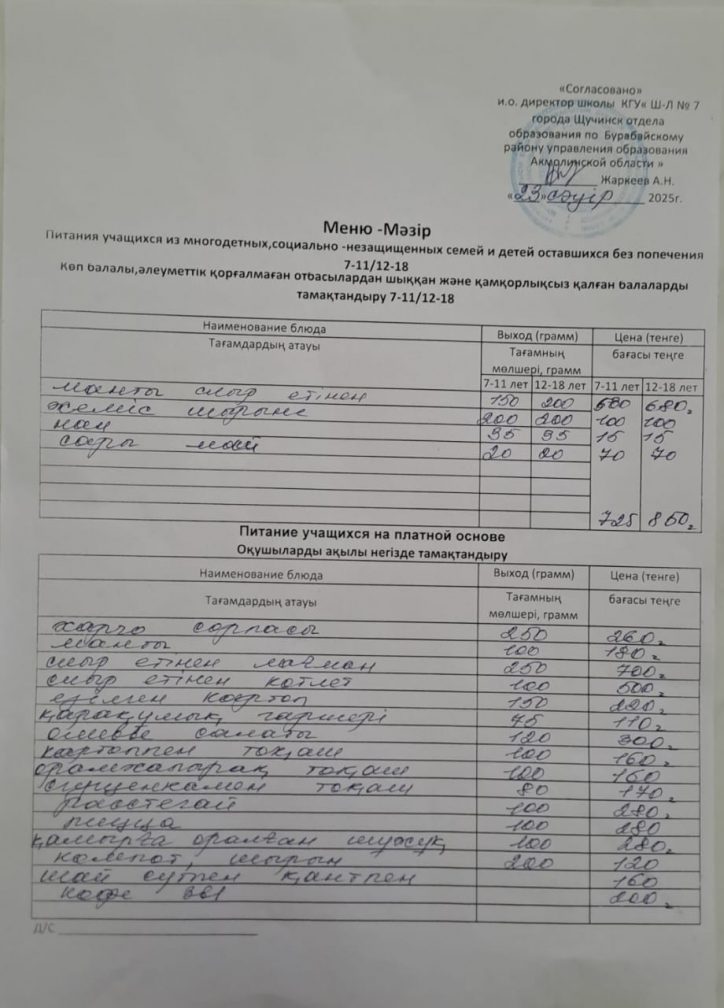 «Согласовано»
и.о. директор школы КГУ« Ш-Л № 7
города Щучинск отдела
образования по Бурабайскому
району управления образования
Акмолинской области »
Жаркеев А.Н.
«23» сәуір 2025г.
Меню -Мәзір
Питания учащихся из многодетных,социально -незащищенных семей и детей оставшихся без попечения
7-11/12-18
Көп балалы,әлеуметтік қорғалмаған отбасылардан шыққан және қамқорлықсыз қалған балаларды
тамақтандыру 7-11/12-18
Наименование блюда Выход (грамм) Цена (тенге)
Тағамдардың атауы Тағамның бағасы теңге
мөлшері, грамм
7-11 лет 12-18 лет 7-11 лет 12-18 лет
манты сиыр етінен 150 200 680 680
жеміс шырыне 200 200 100 100
нан 35 35 15 15
сары май 20 20 70 70
725 850
Питание учащихся на платной основе
Оқушыларды ақылы негізде тамақтандыру
Наименование блюда Выход (грамм) Цена (тенге)
Тағамдардың атауы Тағамның бағасы теңге
мөлшері, грамм
харчо сорпасы 250 260
манты 100 180
сиыр етінен лағман 250 700
сиыр етінен котлет 100 500
езілген картоп 150 220
қарақұмық гарнері 75 110
оливье салаты 120 300
картоппен тоқаш 100 160
орамжапырақ тоқаш 100 160
сгущенкамен тоқаш 80 170
расстегай 100 280
пицца 100 280
қамырға оралған шұжұқ 100 280
компот, шырын 200 120
шай сүтпен қантпен 160
кофе 3в1 200
Д/С